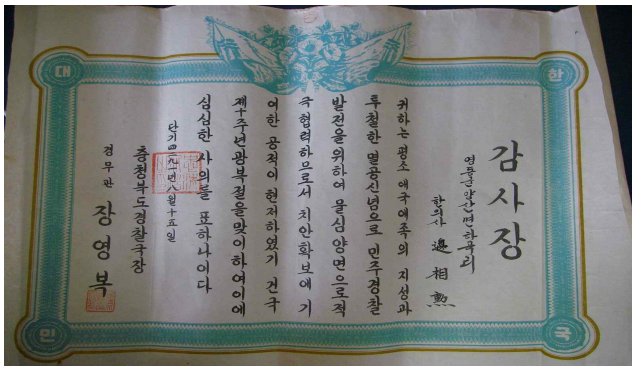 대한민국
감사장
영동군양산면하곡리
한의사 邊相勲
귀하는 평소 애국애족의 지성과
투철한 멸공신념으로 민주경찰
발전을위하여 물심양면으로적
극협력하므로서 치안확보에 기
여한 공적이 현저하였기 건국
제十주년광복절을맞이하여이에
심심한 사의를 표하나이다
단기四二九一년八월十五일
충청북도경찰국장
경무관 장영복